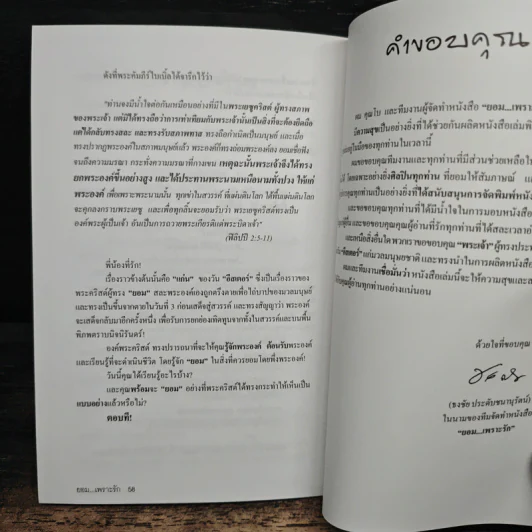 ดังที่พระคัมภีร์ไบเบิ้ลได้จารึกไว้ว่า
"ท่านจงมีน้ำใจต่อกันเหมือนอย่างที่มีในพระเยซูคริสต์ ผู้ทรงสภาพ
ของพระเจ้า แต่มิได้ทรงถือว่าการเท่าเทียมกับพระเจ้านั้นเป็นสิ่งที่จะต้องยึดถือ
แต่ได้กลับทรงสละ และทรงรับสภาพทาส ทรงถือกำเนิดเป็นมนุษย์ และเมื่อ
ทรงปรากฏพระองค์ในสภาพมนุษย์แล้ว พระองค์ก็ทรงถ่อมพระองค์ลง ยอมเชื่อฟัง
จนถึงความมรณา กระทั่งความมรณาที่กางเขน เหตุฉะนั้นพระเจ้าจึงได้ทรง
ยกพระองค์ขึ้นอย่างสูง และได้ประทานพระนามเหนือนามทั้งปวง ให้แก่
พระองค์ เพื่อเพราะพระนามนั้น ทุกเข่าในสวรรค์ ที่แผ่นดินโลก ใต้พื้นแผ่นดินโลก
จะคุกลงกราบพระเยซู และเพื่อทุกลิ้นจะยอมรับว่า พระเยซูคริสต์ทรงเป็น
องค์พระผู้เป็นเจ้า อันเป็นการถวายพระเกียรติแด่พระบิดาเจ้า"
(ฟีลิปปี 2:5-11)
พี่น้องที่รัก!
เรื่องราวข้างต้นนั้นคือ "แก่น" ของวัน "อีสเตอร์" ซึ่งเป็นเรื่องราวของ
พระคริสต์ผู้ทรง "ยอม" สละพระองค์เองถูกตรึงตายเพื่อไถ่บาปของมวลมนุษย์
และทรงเป็นขึ้นจากตายในวันที่ 3 ก่อนเสด็จสู่สวรรค์ และทรงสัญญาว่า พระองค์
จะเสด็จกลับมาอีกครั้งหนึ่ง เพื่อรับการยกย่องเทิดทูนจากทั้งในสวรรค์และบนพื้น
พิภพตราบนิจนิรันดร์!
องค์พระคริสต์ ทรงปรารถนาที่จะให้คุณรู้จักพระองค์ ต้อนรับพระองค์
และเรียนรู้ที่จะดำเนินชีวิต โดยรู้จัก "ยอม" ในสิ่งที่ควรยอมตามพึ่งพระองค์!
วันนี้คุณได้เรียนรู้อะไรบ้าง?
และคุณพร้อมจะ "ยอม" อย่างที่พระคริสต์ได้ทรงกระทำให้เห็นเป็น
แบบอย่างแล้วหรือไม่?
ตอบที!
ยอม...เพราะรัก 58
คำขอบคุณ
ผม คุณโบ และทีมงานผู้จัดทำหนังสือ "ยอม...เพราะ
มีความสุขเป็นอย่างยิ่งที่ได้ช่วยกันผลิตหนังสือเล่มพิ
อยู่ในมือของทุกท่านในเวลานี้
ผมขอขอบคุณทีมงานและทุกท่านที่มีส่วนช่วยเหลือให้
โดยเฉพาะอย่างยิ่งศิลปินทุกท่าน ที่ยอมให้สัมภาษณ์
คุณทุกท่านเป็นอย่างยิ่งที่ได้สนับสนุนการจัดพิมพ์หนังสื
ขอขอบคุณทุกท่านที่มีน้ำใจในการมอบหนังสือ
และขอขอบคุณคุณผู้อ่านที่รักทุกท่านที่ได้สละเวลาอ่
เหนือสิ่งอื่นใดพวกเราขอขอบคุณ "พระเจ้า" ผู้ทรงประท
"อีสเตอร์" แก่มวลมนุษยชาติ และทรงนำในการผลิตหนังสือ
ผมและทีมงานเชื่อมั่นว่า หนังสือเล่มนี้จะให้ความสุขและส
คุณผู้อ่านทุกท่านอย่างแน่นอน
ด้วยใจที่ขอบคุณ
(ธงชัย ประดับชนานุรัตน์)
ในนามของทีมจัดทำหนังสือ
"ยอม...เพราะรัก"